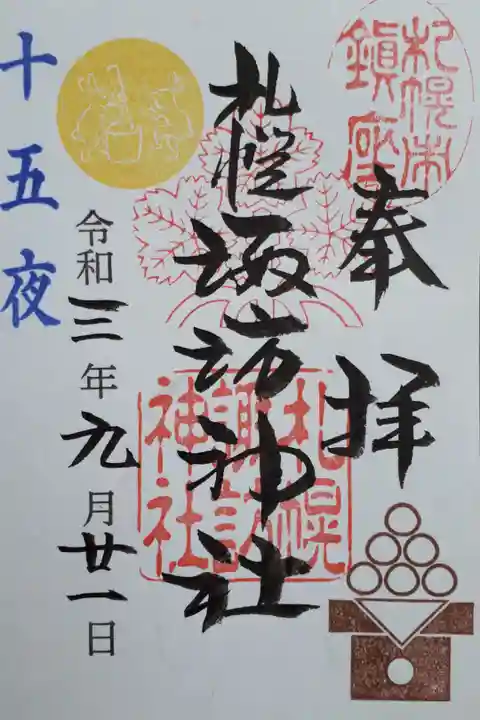 札幌市
鎭座
奉拝
札幌諏訪神社
札幌
諏訪
神社
令和三年九月廿一日
十五夜